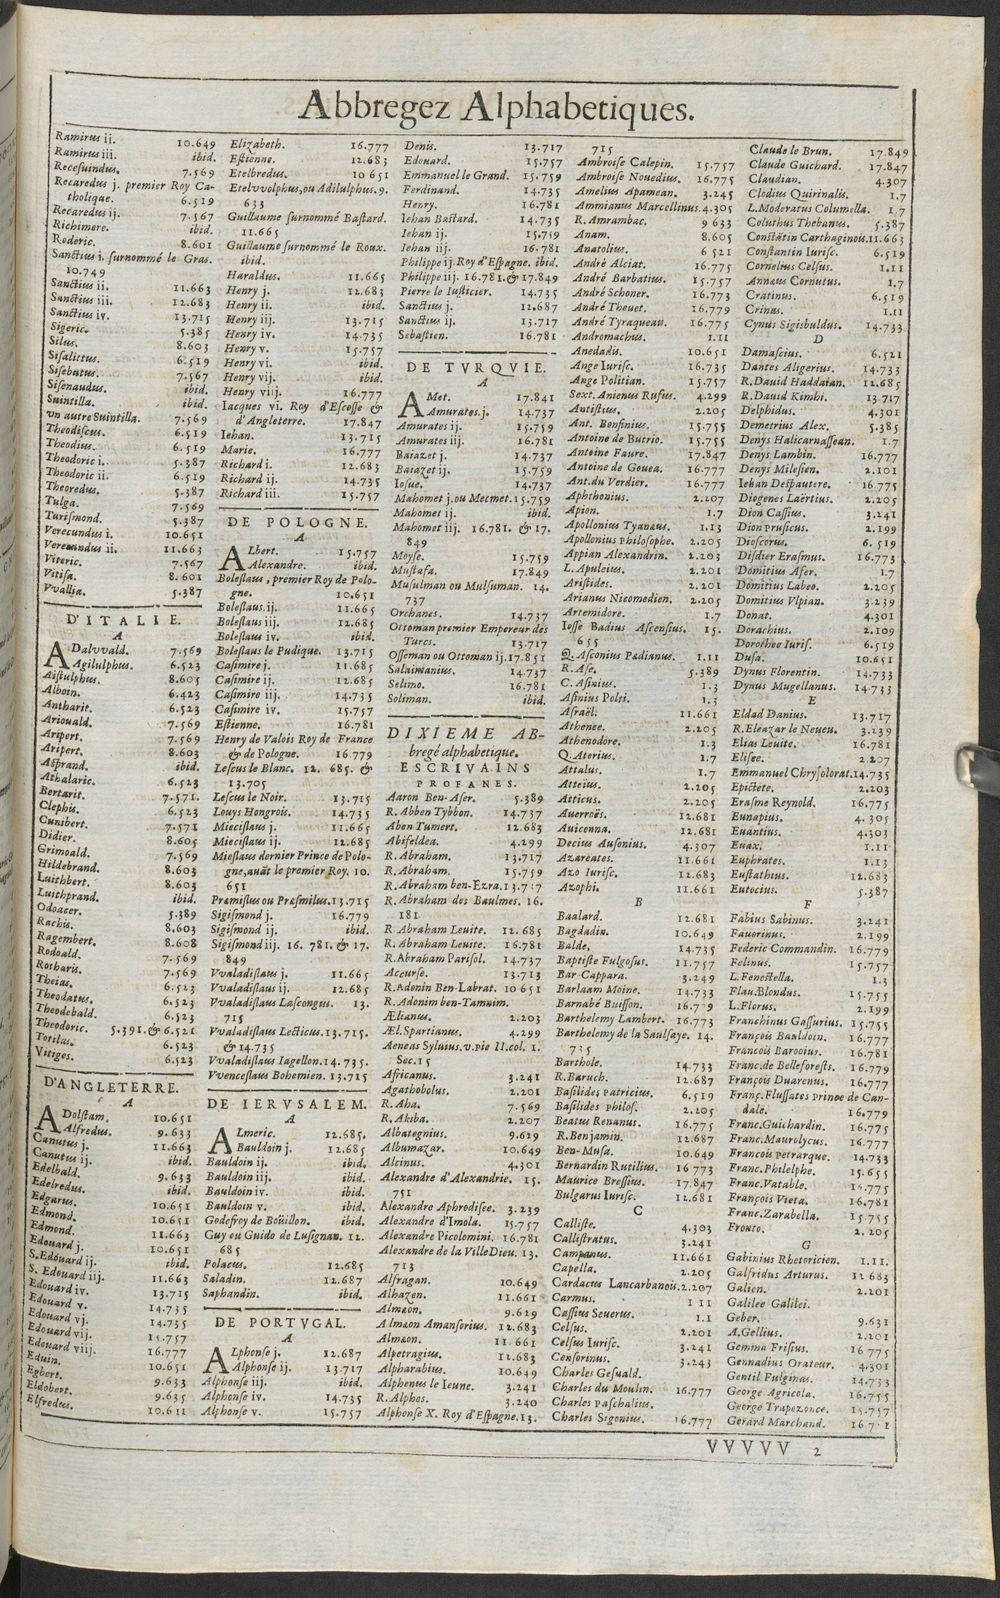 Abbregez Alphabetiques.
Ramirus ii. 10.649
Ramirus iii. ibid.
Recesuindus. 7.569
Recaredus j. premier Roy Ca-
tholique. 6.519
Recaredus ij. 7.567
Richimere. ibid.
Roderic. 8.601
Sanctius i. surnommé le Gras.
10.749
Sanctius ii. 11.663
Sanctius iii. 12.683
Sanctius iv. 13.715
Sigeric. 5.385
Silus. 8.603
Sisalittus. 6.519
Sisebutus. 7.567
Sisenaudus. ibid.
Suintilla. ibid.
vn autre Suintilla. 7.569
Theodiscus. 6.519
Theodius. 6.519
Theodoric i. 5.387
Theodoric ii. 6.519
Theoredus. 5.387
Tulga. 7.569
Turismond. 5.387
Verecundus i. 10.651
Verecundus ii. 11.663
Viteric. 7.567
Vitisa. 8.601
Vvallia. 5.387
D'ITALIE.
A
ADalvvald. 7.569
Agilulphus. 6.523
Aistulphus. 8.605
Alboin. 6.423
Antharit. 6.523
Ariouald. 7.569
Aripert. 7.569
Aripert. 8.603
Asprand. ibid.
Athalaric. 6.523
Bertarit. 7.571.
Clephis. 6.523
Cunibert. 7.571
Didier. 8.605
Grimoald. 7.569
Hildebrand. 8.603
Luithbert. 8.603
Luithprand. ibid.
Odoacer. 5.389
Rachis. 8.603
Ragembert. 8.608
Rodoald. 7.569
Rotharis. 7.569
Theias. 6.523
Theodatus. 6.523
Theodebald. 6.523
Theodoric. 5.391.& 6.521
Totilas. 6.523
Vitiges. 6.523
D'ANGLETERRE.
A
ADolstam. 10.651
Alfredus. 9.633
Canutus j. 11.663
Canutus ij. ibid.
Edelbald. 9.633
Edelredus. ibid.
Edgarus. 10.651
Edmond. 10.651
Edmond. 11.663
Edouard j. 10.651
S.Edouard ij. ibid.
S. Edouard iij. 11.663
Edouard iv. 13.715
Edouard v. 14.735
Edouard vj. 14.735
Edouard vij. 15.757
Edouard viij. 16.777
Eduin. 10.651
Egbert. 9.633
Eldobert. 9.635
Elfredus. 10.611
Elizabeth. 16.777
Estienne. 12.683
Etelbredus. 10 651
Etelvvolphus,ou Adilulphus.9.
633
Guillaume surnommé Bastard.
11.665
Guillaume surnommé le Roux.
ibid.
Haraldus. 11.665
Henry j. 12.683
Henry ii. ibid.
Henry iij. 13.715
Henry iv. 14.735
Henry v. 15.757
Henry vi. ibid.
Henry vij. ibid.
Henry viij. 16.777
Iacques vi. Roy d'Escosse &
d'Angleterre. 17.847
Iehan. 13.715
Marie. 16.777
Richard i. 12.683
Richard ij. 14.735
Richard iii. 15.757
DE POLOGNE.
A
ALbert. 15.757
Alexandre. ibid.
Boleslaus, premier Roy de Polo-
gne. 10.651
Boleslaus.ij. 11.665
Boleslaus iij. 12.685
Boleslaus iv. ibid.
Boleslaus le Pudique. 13.715
Casimire j. 11.685
Casimire ij. 12.685
Casimire iij. 14.735
Casimire iv. 15.757
Estienne. 16.781
Henry de Valois Roy de France
& de Pologne. 16.779
Lescus le Blanc. 12. 685. &
13.705
Lescus le Noir. 13.715
Louys Hongrois. 14.735
Miecislaus j. 11.665
Miecislaus ij. 12.685
Mieslaus dernier Prince de Polo-
gne,auãt le premier Roy. 10.
651
Premislus ou Præsmilus.13.715
Sigismond j. 16.779
Sigismond ij. ibid.
Sigismond iij. 16. 781. & 17.
849
Vvaladislaus j. 11.665
Vvaladislaus ij. 12.685
Vvaladislaus Lascongus. 13.
715
Vvaladislaus Lecticus.13.715.
& 14.735
Vvaladislaus Iagellon.14.735.
Vvenceslaus Bohemien. 13.715
DE IERVSALEM.
A
ALmeric. 12.685.
Bauldoin j. 12.685
Bauldoin ij. ibid.
Bauldoin iij. ibid.
Bauldoin iv. ibid.
Bauldoin v. ibid.
Godefroy de Boüillon. ibid.
Guy ou Guido de Lusignan. 12.
685
Polacus. 12.685
Saladin. 12.687
Saphandin. ibid.
DE PORTVGAL.
A
ALphonse j. 12.687
Alphonse ij. 13.717
Alphonse iij. ibid.
Alphonse iv. 14.735
Alphonse v. 15.757
Denis. 13.717
Edouard. 15.757
Emmanuel le Grand. 15.759
Ferdinand. 14.735
Henry. 16.781
Iehan Bastard. 14.735
Iehan ij. 15.759
Iehan iij. 16.781
Philippe ij.Roy d'Espagne. ibid.
Philippe iij. 16.781.& 17.849
Pierre le Iusticier. 14.735
Sanctius j. 12.687
Sanctius ij. 13.717
Sebastien. 16.781
DE TVRQVIE.
A
AMet. 17.841
Amurates.j. 14.737
Amurates ij. 15.759
Amurates iij. 16.781
Baiazet j. 14.737
Baiazet ij. 15.759
Iosue. 14.737
Mahomet j.ou Mecmet.15.759
Mahomet ij. ibid.
Mahomet iij. 16.781. & 17.
849
Moyse. 15.759
Mustafa. 17.849
Musulman ou Mulsuman. 14.
737
Orchanes. 14.737
Ottoman premier Empereur des
Turcs. 13.717
Osseman ou Ottoman ij.17.851
Salaimanius. 14.737
Selimo. 16.781
Soliman. ibid.
DIXIEME AB-
bregé alphabetique.
ESCRIVAINS
PROFANES.
Aaron Ben-Aser. 5.389
R. Abben Tybbon. 14.737
Aben Tumert. 12.683
Abifeldea. 4.299
R. Abraham. 13.717
R. Abraham. 15.759
R. Abraham ben-Ezra.13.717
R. Abraham des Baulmes. 16.
181
R Abraham Leuite. 12. 685
R. Abraham Leuite. 16.781
R.Abraham Parisol. 14.737
Accurse. 13.713
R.Adonin Ben-Labrat. 10 651
R. Adonim ben-Tamnim.
Ælianus. 2.203
Æl.Spartianus. 4.299
Aeneas Syluius.v.pie II.col. 1.
Sec.15
Africanus. 3.241
Agathobolus. 2.201
R. Aha. 7.569
R. Akiba. 2.207
Albategnius. 9.629
Albumazar. 10.649
Alcinus. 4.301
Alexandre d'Alexandrie. 15.
751
Alexandre Aphrodisee. 3.239
Alexandre d'Imola. 15.757
Alexandre Picolomini. 16.781
Alexandre de la Ville Dieu. 13.
713
Alfragan. 10.649
Alhazen. 11.661
Almæon. 9.629
Almæon Amansorius. 12.683
Almæon. 11.661
Alpetragius. 12.683
Alpharabius. 10.649
Alphenus le Ieune. 3.241
R. Alphos. 3.240
Alphonse X. Roy d'Espagne.13.
715
Ambroise Calepin. 15.757
Ambroise Nouedius. 16.775
Amelius Apamean. 3.245
Ammianus Marcellinus.4.305
R. Amrambac. 9 633
Anam. 8.605
Anatolius. 6 521
André Alciat. 16.775
André Barbatius. 15.757
André Schoner. 16.773
André Theuet. 16.779
André Tyraqueau. 16.775
Andromachus. 1.11
Anedadis. 10.651
Ange Iurisc. 16.735
Ange Politian. 15.757
Sext. Anienus Rufus. 4.299
Autistius. 2.205
Ant. Bonfinius. 15.755
Antoine de Butrio. 15.755
Antoine Faure. 17.847
Antoine de Gouea. 16.777
Ant.du Verdier. 16.777
Aphthonius. 2.207
Apion. 1.7
Apollonius Tyanæus. 1.13
Apollonius Philosophe. 2.205
Appian Alexandrin. 2.203
L. Apuleius. 2.201
Aristides. 2.201
Arianus Nicomedien. 2.205
Artemidore. 1.7
Iosse Badius Ascensius. 15.
655
Q. Asconius Pædianus. 1.11
R. Ase. 5.389
C. Asinius. 1.3
Asinius Polti. 1.3
Asraël. 11.661
Athenee. 2.205
Athenodore. 1.3
Q.Aterius. 1.7
Attalus. 1.7
Atteius. 2.205
Atticus. 2.205
Auerroës. 12.681
Auicenna. 12.681
Decius Ausonius. 4.307
Azareates. 11.661
Azo Iurisc. 12.683
Azophi. 11.661
B
Baalard. 12.681
Bagdadin. 10.649
Balde. 14.735
Baptiste Fulgosus. 11.757
Bar-Cappara. 3.249
Barlaam Moine. 14.733
Barnabé Buisson. 16.7 9
Barthelemy Lambert. 16.773
Barthelemy de la Saulsaye. 14.
735
Barthole. 14.733
R.Baruch. 12.687
Basilides patricius. 6.519
Basilides philos. 2.205
Beatus Renanus. 16.775
R.Benjamin. 12.687
Ben-Musa. 10.649
Bernardin Rutilius. 16 773
Maurice Bressius. 17.847
Bulgarus Iurisc. 12.681
C
Calliste. 4.303
Callistratus. 3.241
Campanus. 11.661
Capella. 2.205
Cardacus Lancarbanois.2.207
Carmus. 1 11
Cassius Seuerus. 1.1
Celsus. 2.201
Celsus Iurisc. 3.241
Censorinus. 3.243
Charles Gesuald.
Charles du Moulin. 16.777
Charles Paschalius.
Charles Sigonius. 16.777
Claude le Brun. 17.849
Claude Guichard. 17.847
Claudian. 4.307
Clodius Quirinalis. 1.7
L.Moderatus Columella. 1 7
Coluthus Thebanus. 5.387
Constãtin Carthaginois.11.663
Constantin Iurisc. 6.519
Cornelius Celsus. 1.11
Annæus Cornutus. 1.7
Cratinus. 6.519
Crinas. 1.11
Cynus Sigisbuldus. 14.733
D
Damascius. 6.521
Dantes Aligerius. 14.733
R.Dauid Haddaian. 12.685
R.Dauid Kimhi. 13.717
Delphidus. 4.301
Demetrius Alex. 5.385
Denys Halicarnassean. 1.7
Denys Lambin. 16.777
Denys Milesien. 2.101
Iehan Despautere. 16.775
Diogenes Laërtius. 2.205
Dion Cassius. 3.241
Dion prusicus. 2.199
Dioscorus. 6. 519
Disdier Erasmus. 16.773
Domitius Afer. 1.7
Domitius Labeo. 2.205
Domitius Vlpian. 3.239
Donat. 4.301
Dorachius. 2.109
Dorothee Iurisc. 6.519
Dusa. 10.651
Dynus Florentin. 14.733
Dynus Mugellanus. 14.733
E
Eldad Danius. 13.717
R.Eleazar le Neueu. 3.239
Elias Leuite. 16.781
Elisee. 2.207
Emmanuel Chrysolorat.14.735
Epictete. 2.203
Erasme Reynold. 16.775
Eunapius. 4.305
Euantius. 4.303
Euax. 1.11
Euphrates. 1.13
Eustathius. 12.683
Eutocius. 5.387
F
Fabius Sabinus. 3.241
Fauorinus. 2.199
Federic Commandin. 16.779
Felinus. 15.757
L.Fenestella. 1.3
Flau.Blondus. 15.755
L.Florus. 2.199
Franchinus Gaffurius. 15.755
François Bauldoin. 16.777
Francois Barocius. 16.781
Franc.de Belleforests. 16.779
François Duarenus. 16.777
Franç.Flussates prince de Can-
dale. 16.779
Franc.Guichardin. 16.775
Franc.Maurolycus. 16.777
Francois petrarque. 14.733
Franc.Philelphe. 15.655
Franc.Vatable. 16.775
François Vieta. 16.781
Franc.Zarabella. 15.755
Fronto. 2. 205
G
Gabinius Rhetoricien. 1.11.
Galfridus Arturus. 12 683
Galien. 2.201
Galilee Galilei.
Geber. 9.631
A.Gellius. 2.201
Gemma Frisius. 16 775
Gennadius Orateur. 4.301
Gentil Fulginas. 14.733
George Agricola. 16.755
George Trapezonce. 15.757
Gerard Marchand. 16 7 1
VVVVV 2